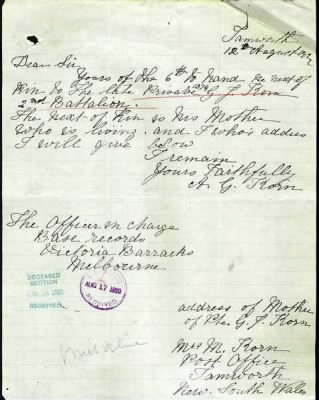 Tamworth
12th August
Dear Sir
Yours of the 6th to hand re next of
Kin to the late Private G J Korn
2nd Battalion.
The next of Kin is His Mother
who is living. and I who's addres
I will give below
I remain
Yours Faithfully
A. G. Korn
The Officer in charge
Base records
Victoria Barracks
Melbourne
DECEASED
SECTION
AUG 17 1920
RECEIVED
address of Mother
of Pte. G. J. Korn.
Mrs M. Korn
Post Office
Tamworth
New South Wales